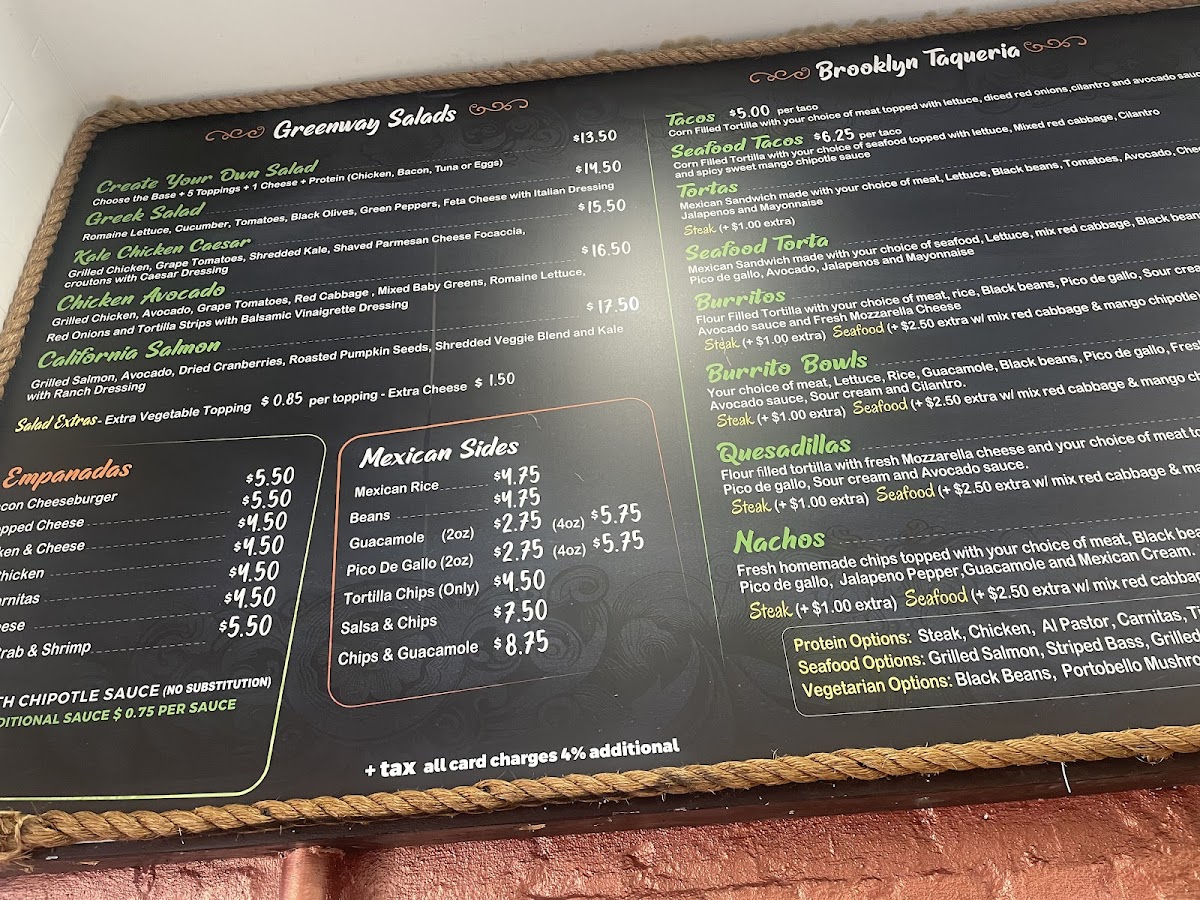 Greenway Salads
Create Your Own Salad $13.50
Choose the Base + 5 Toppings + 1 Cheese + Protein (Chicken, Bacon, Tuna or Eggs)
Greek Salad $14.50
Romaine Lettuce, Cucumber, Tomatoes, Black Olives, Green Peppers, Feta Cheese with Italian Dressing
Kale Chicken Caesar $15.50
Grilled Chicken, Grape Tomatoes, Shredded Kale, Shaved Parmesan Cheese Focaccia,
croutons with Caesar Dressing
Chicken Avocado $16.50
Grilled Chicken, Avocado, Grape Tomatoes, Red Cabbage , Mixed Baby Greens, Romaine Lettuce,
Red Onions and Tortilla Strips with Balsamic Vinaigrette Dressing
California Salmon $17.50
Grilled Salmon, Avocado, Dried Cranberries, Roasted Pumpkin Seeds, Shredded Veggie Blend and Kale
with Ranch Dressing
Salad Extras - Extra Vegetable Topping $0.85 per topping - Extra Cheese $1.50
Empanadas
Cheeseburger $5.50
Cheese $5.50
& Cheese $4.50
Chicken $4.50
$4.50
$4.50
Crab & Shrimp $5.50
CHIPOTLE SAUCE (NO SUBSTITUTION)
SAUCE $0.75 PER SAUCE
Mexican Sides
Mexican Rice $4.75
Beans $4.75
Guacamole (2oz) $2.75 (4oz) $5.75
Pico De Gallo (2oz) $2.75 (4oz) $5.75
Tortilla Chips (Only) $4.50
Salsa & Chips $7.50
Chips & Guacamole $8.75
+ tax all card charges 4% additional
Brooklyn Taqueria
Tacos $5.00 per taco
Corn Filled Tortilla with your choice of meat topped with lettuce, diced red onions,cilantro and avocado
Seafood Tacos $6.25 per taco
Corn Filled Tortilla with your choice of seafood topped with lettuce, Mixed red cabbage, Cilantro
and spicy sweet mango chipotle sauce
Tortas
Mexican Sandwich made with your choice of meat, Lettuce, Black beans, Tomatoes, Avocado,
Jalapenos and Mayonnaise
Steak (+ $1.00 extra)
Seafood Torta
Mexican Sandwich made with your choice of seafood, Lettuce, mix red cabbage, Black
Pico de gallo, Avocado, Jalapenos and Mayonnaise
Burritos
Flour Filled Tortilla with your choice of meat, rice, Black beans, Pico de gallo, Sour
Avocado sauce and Fresh Mozzarella Cheese
Steak (+ $1.00 extra) Seafood (+ $2.50 extra w/ mix red cabbage & mango chipotle
Burrito Bowls
Your choice of meat, Lettuce, Rice, Guacamole, Black beans, Pico de gallo,
Avocado sauce, Sour cream and Cilantro.
Steak (+ $1.00 extra) Seafood (+ $2.50 extra w/ mix red cabbage & mango
Quesadillas
Flour filled tortilla with fresh Mozzarella cheese and your choice of meat
Pico de gallo, Sour cream and Avocado sauce.
Steak (+ $1.00 extra) Seafood (+ $2.50 extra w/ mix red cabbage &
Nachos
Fresh homemade chips topped with your choice of meat, Black
Pico de gallo, Jalapeno Pepper,Guacamole and Mexican Cream.
Steak (+ $1.00 extra) Seafood (+ $2.50 extra w/ mix red
Protein Options: Steak, Chicken, Al Pastor, Carnitas,
Seafood Options: Grilled Salmon, Striped Bass, Grilled
Vegetarian Options: Black Beans, Portobello